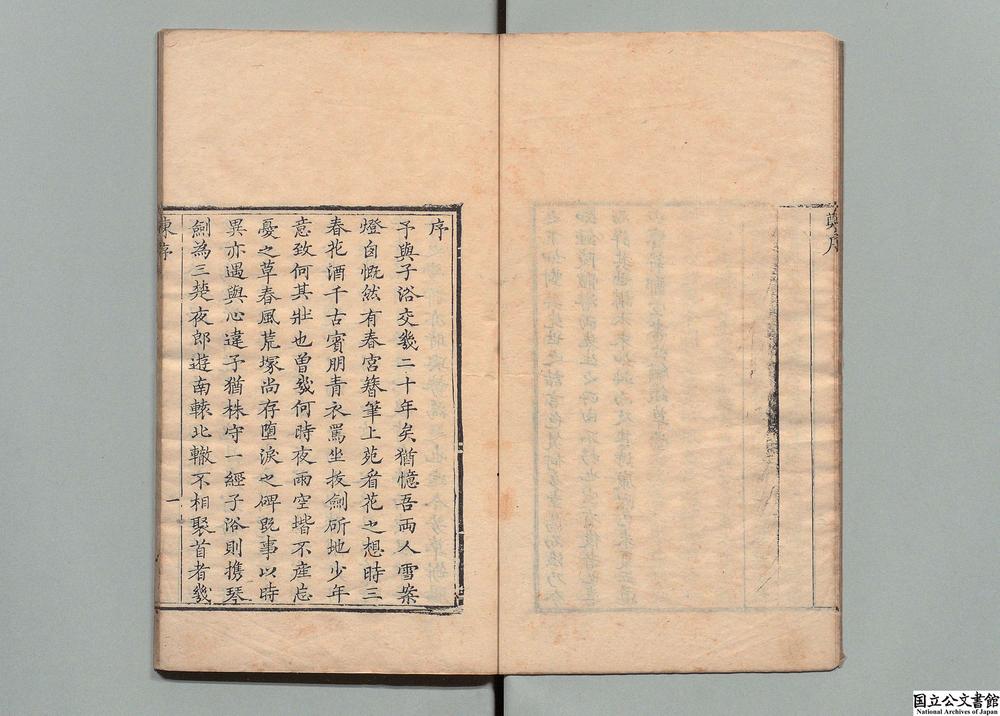 序
予與子浴交幾二十年矣猶憶吾兩人雪案
燈囱慨然有春宮簪筆上苑看花之想時三
春花酒千古賓朋青衣罵坐拔劍斫地少年
意致何其壯也曾幾何時夜雨空堦不産忘
憂之草春風荒塚尚存堕淚之碑旣事以時
異亦遇與心違予猶株守一經子浴則携琴
劍為三楚夜郎遊南轅北轍不相聚首者幾
序
一
序
国立公文書館
National Archives of Japan